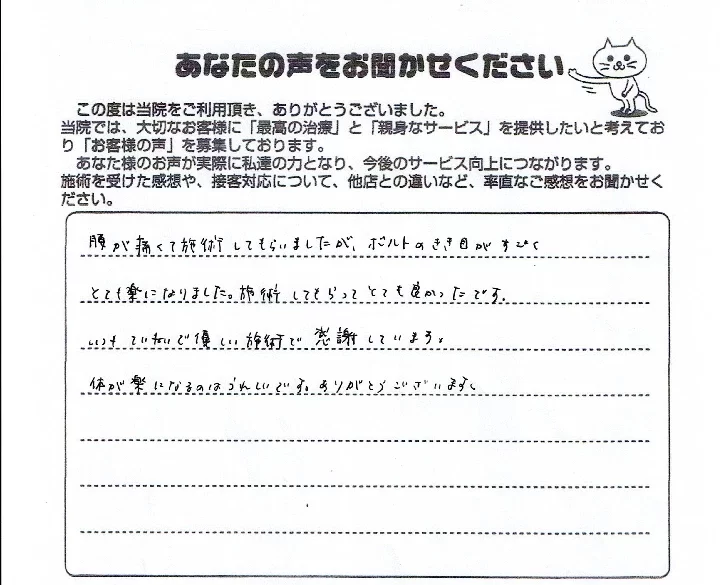 あなたの声をお聞かせください
この度は当院をご利用頂き、ありがとうございました。
当院では、大切なお客様に「最高の治療」と「親身なサービス」を提供したいと考えてお
り「お客様の声」を募集しております。
あなた様のお声が実際に私達の力となり、今後のサービス向上につながります。
施術を受けた感想や、接客対応について、他店との違いなど、率直なご感想をお聞かせく
ださい。
腰が痛くて施術してもらいましたが、ボルトのきき目がすごく
とても楽になりました。施術してもらってとても良かったです。
いつもていねいで優しい施術で感謝しています。
体が楽になるのはうれしいです。ありがとうございます。